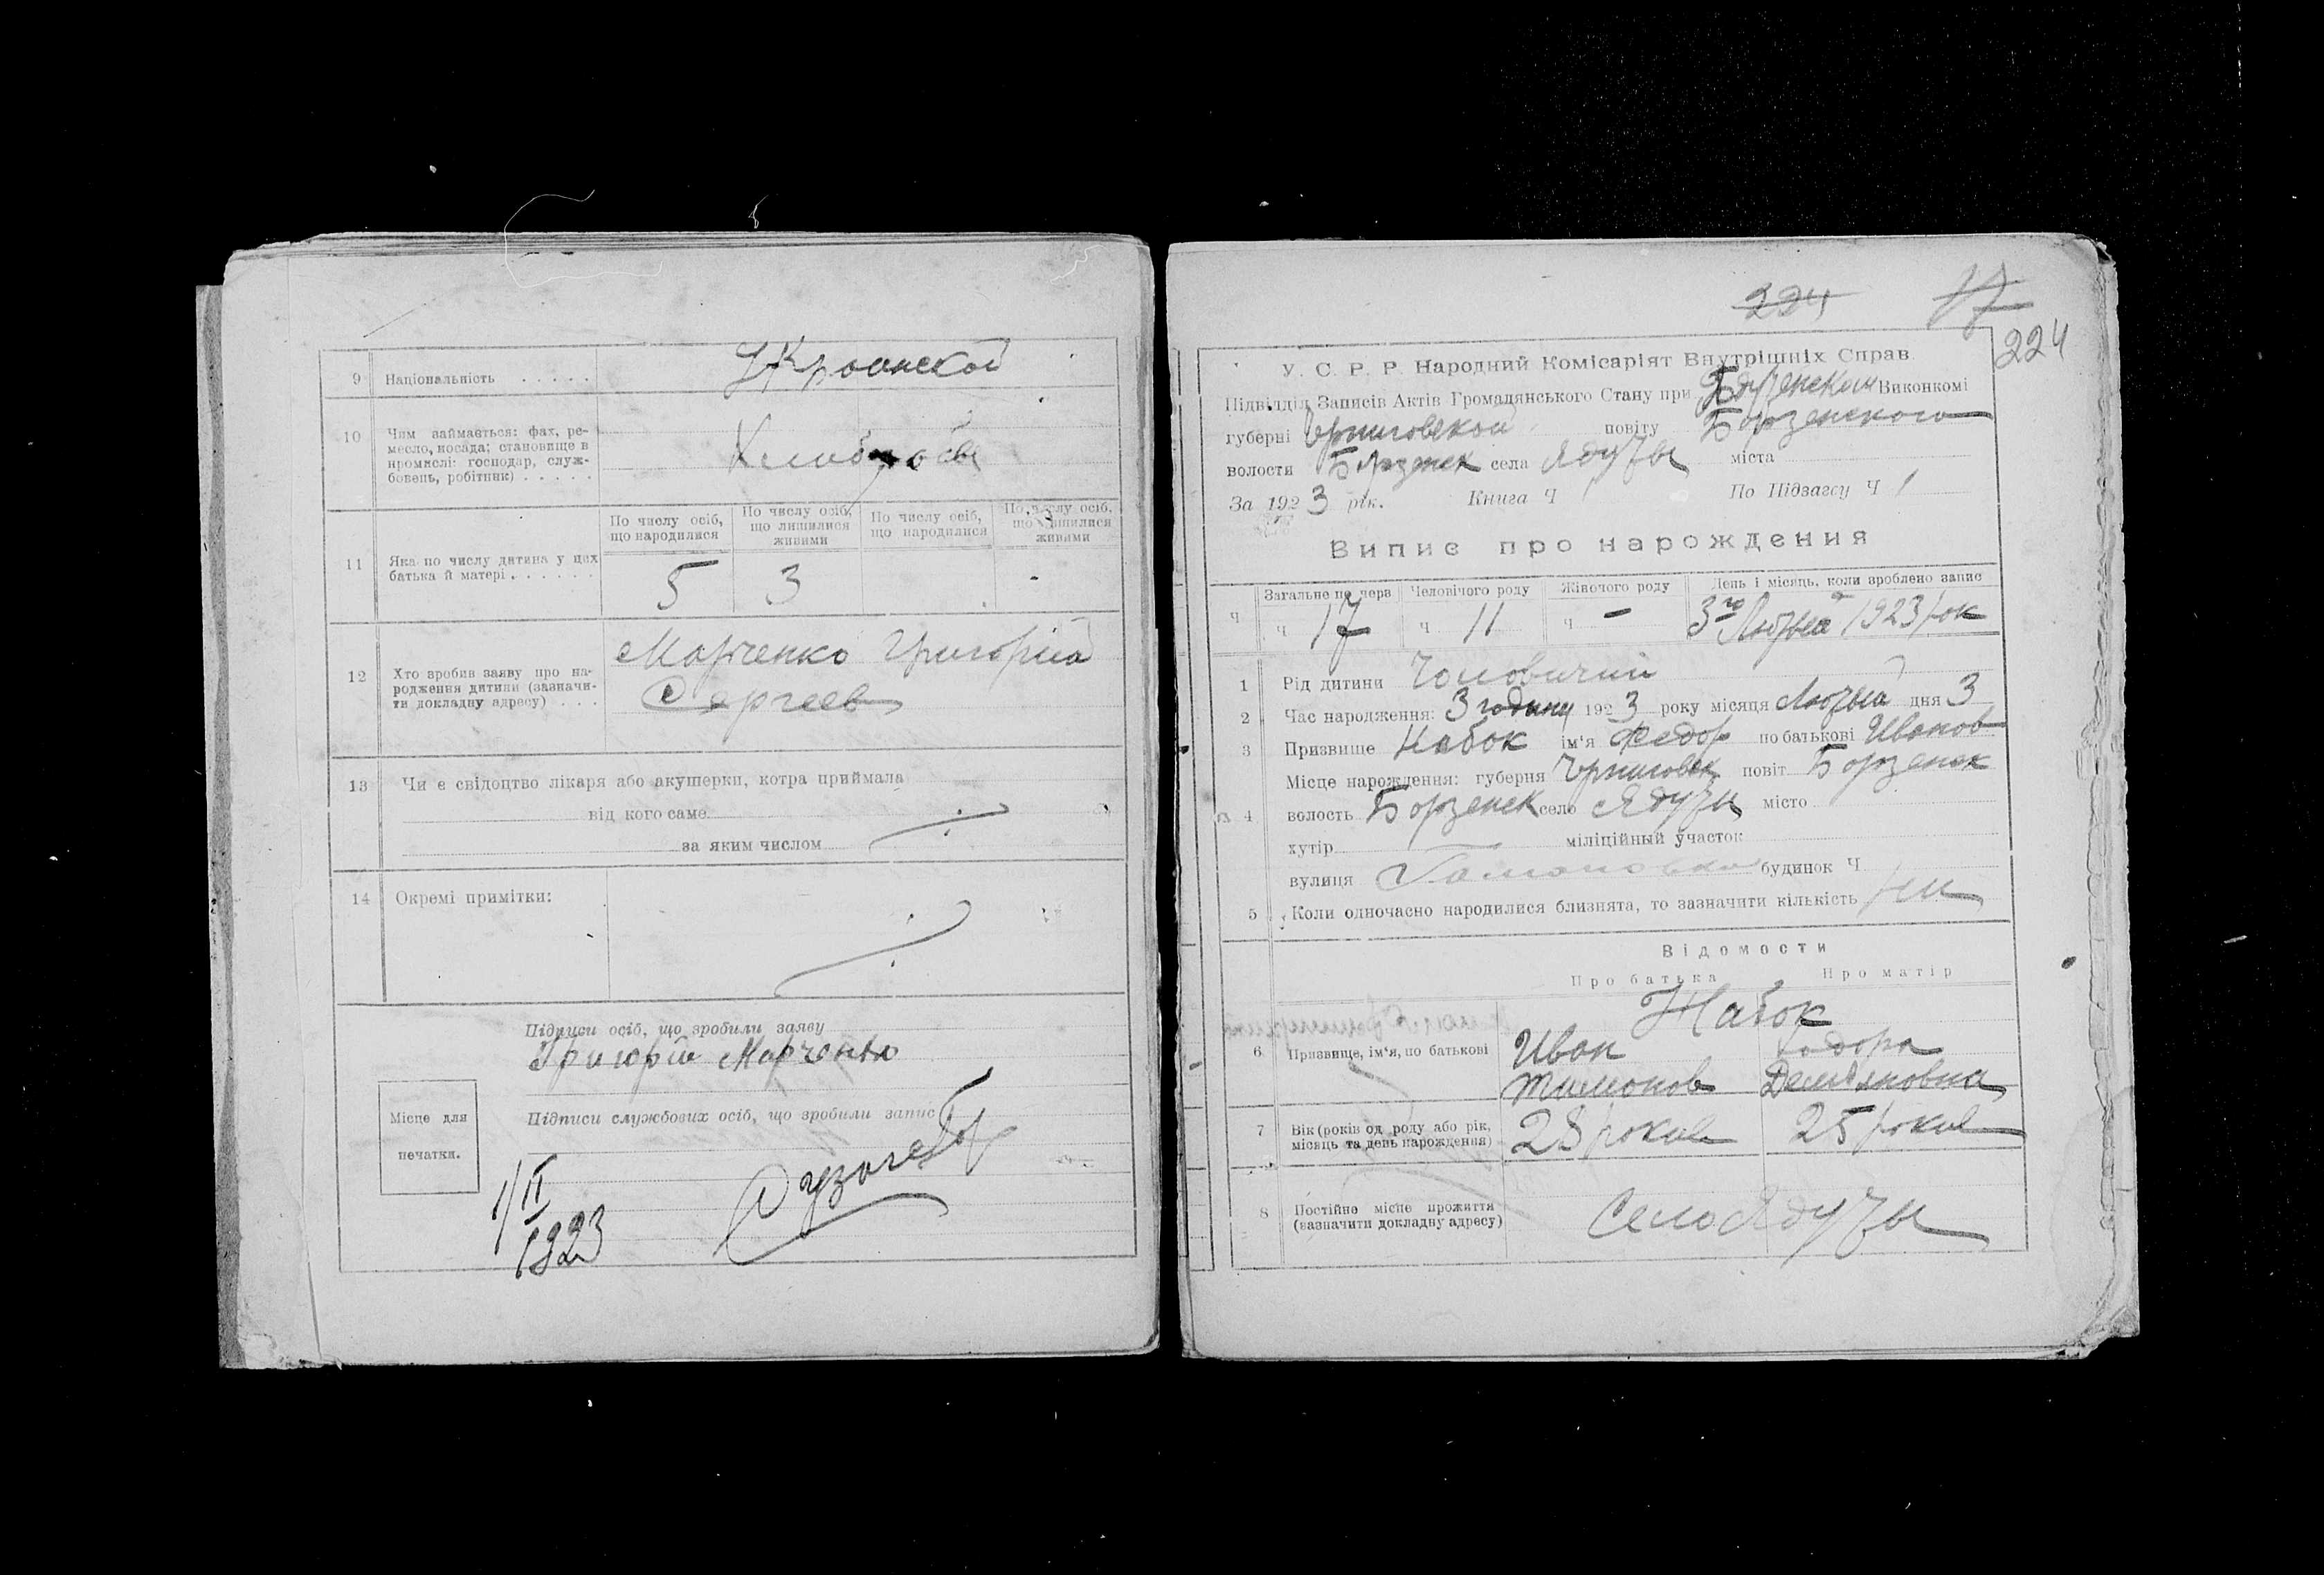 9 Національність . . . . . Украинской
10 Чим займається: фах, ре-
месло, посада; становище в
промислі: господар, служ-
бовець, робітник) . . . . .
11 Яка по числу дитина у цих
батька й матері . . . . . .
По числу осіб,
що народилися
По числу осіб,
що лишилися
живими
По числу осіб,
що народилися
По числу осіб,
що лишилися
живими
5 3
12 Хто зробив заяву про на-
родження дитини (зазначи-
ти докладну адресу) . . .
Марченко Григорій
Сергеев
13 Чи є свідоцтво лікаря або акушерки, котра приймала
від кого саме
за яким числом
14 Окремі примітки:
Підписи осіб, що зробили заяву
Григорій Марченко
Місце для
печатки.
Підписи службових осіб, що зробили запис
1/II
1923
224 17
224
У. С. Р. Р. Народний Комісаріят Внутрішніх Справ.
Підвідділ Записів Актів Громадянського Стану при Виконкомі
губерні Чрниговской повіту Борзенского
волости Борзенск села Ядуты міста
За 1923 рік. Книга Ч 1 По Підзагсу Ч 1
Випис про нарождения
Ч
Загальне по черв
Ч 17
Человічого роду
Ч 11
Жіночого роду
Ч -
День і місяць, коли зроблено запис
3го Лютый 1923 рок
1 Рід дитини Чоловичий
2 Час народження: 3 годины 1923 року місяця Лютый дня 3
3 Призвище Набок ім'я Федор по батькові Иванов
4 Місце нарождения: губерня Чрниговск повіт Борзенск
волость Борзенск село Ядуты місто
хутір міліційный участок
вулиця будинок Ч
5 Коли одночасно народилися близнята, то зазначити кількість
Відомости
Про батька Про матір
Набок
6 Призвище, ім'я, по батькові
Иван Тодора
Тимонов Демяновна
7 Вік (років од роду або рік,
місяць та день нарождения)
28 рокив 25 рокив
8 Постійне місце прожиття
(зазначити докладну адресу)
Село Ядуты